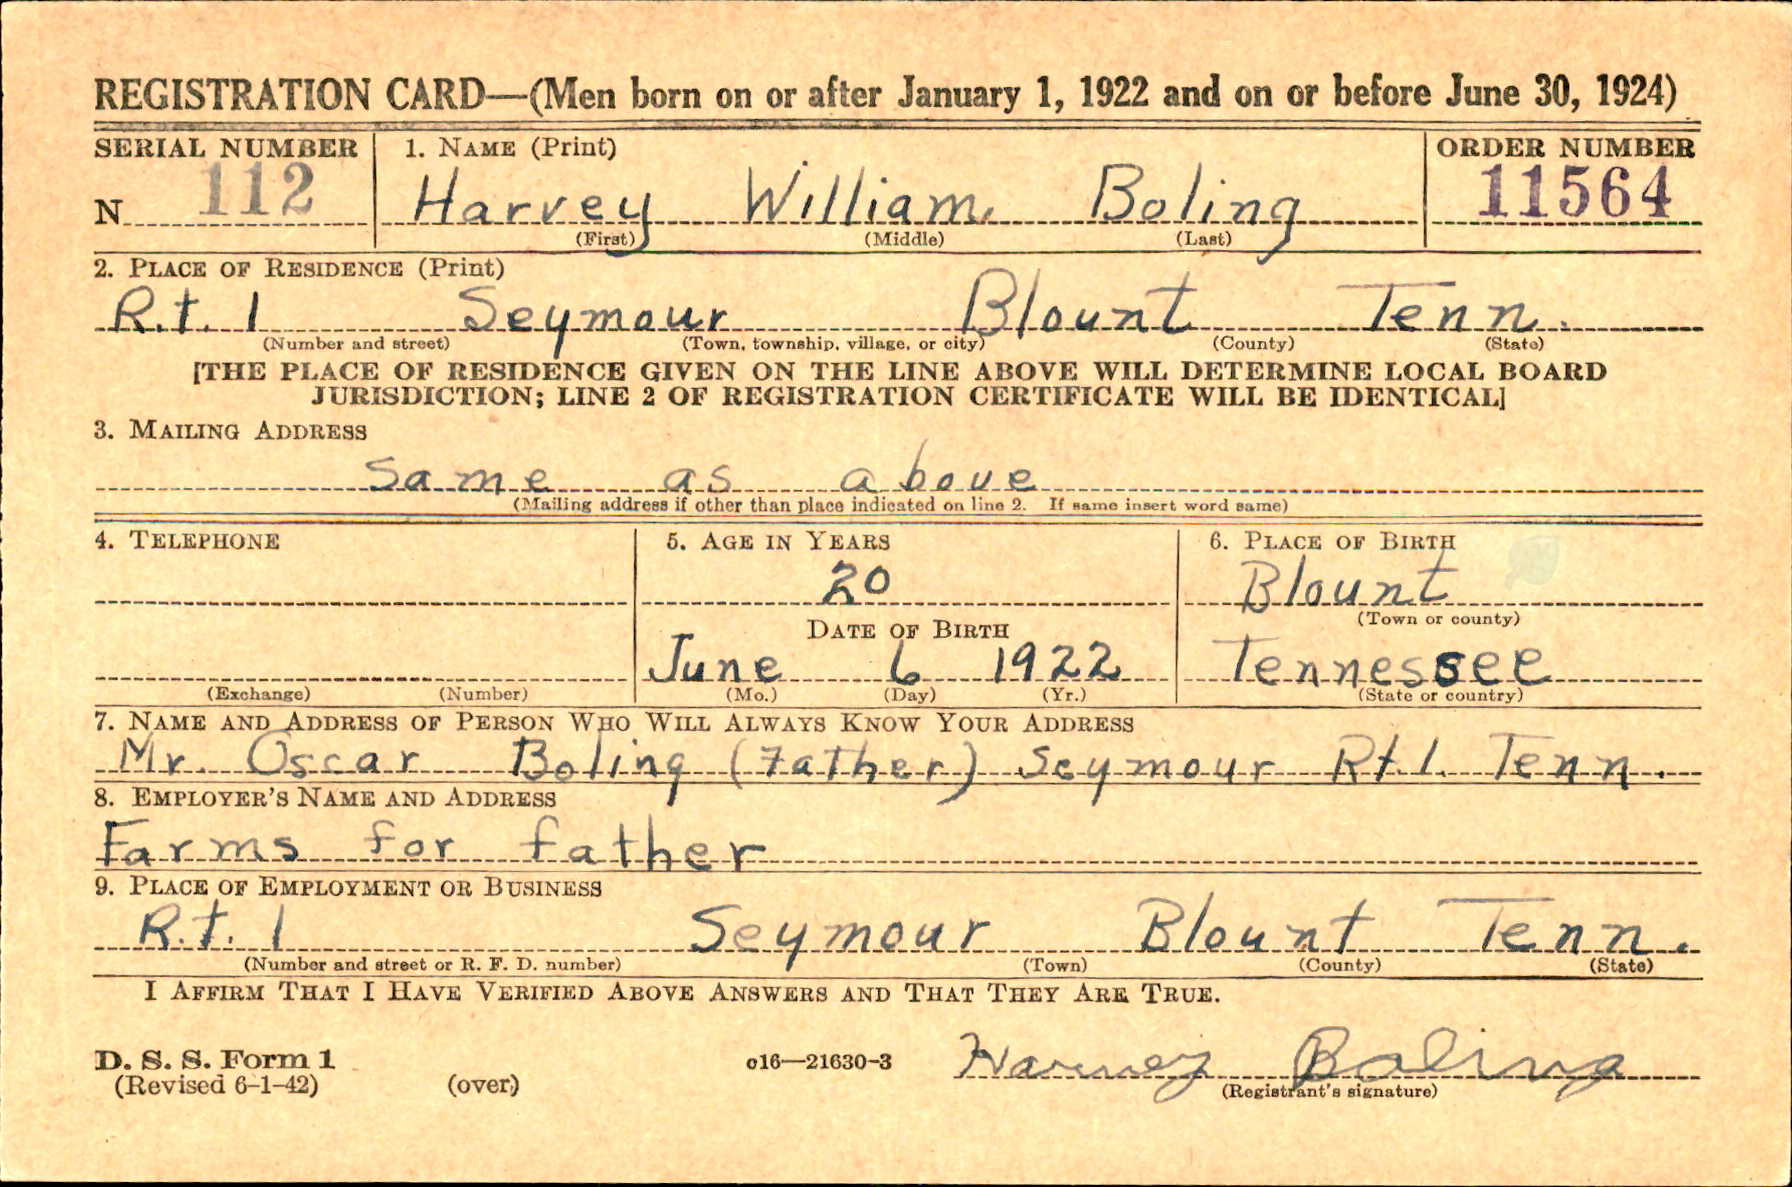 REGISTRATION CARD—(Men born on or after January 1, 1922 and on or before June 30, 1924)
SERIAL NUMBER 1. NAME (Print) ORDER NUMBER
N 112 Harvey William Boling 11564
(First) (Middle) (Last)
2. PLACE OF RESIDENCE (Print)
R.t. 1 Seymour Blount Tenn.
(Number and street) (Town, township, village, or city) (County) (State)
[THE PLACE OF RESIDENCE GIVEN ON THE LINE ABOVE WILL DETERMINE LOCAL BOARD
JURISDICTION; LINE 2 OF REGISTRATION CERTIFICATE WILL BE IDENTICAL]
3. MAILING ADDRESS
Same as above
(Mailing address if other than place indicated on line 2. If same insert word same)
4. TELEPHONE 5. AGE IN YEARS 6. PLACE OF BIRTH
20 Blount
(Town or county)
DATE OF BIRTH
June 6 1922 Tennessee
(Exchange) (Number) (Mo.) (Day) (Yr.) (State or country)
7. NAME AND ADDRESS OF PERSON WHO WILL ALWAYS KNOW YOUR ADDRESS
Mr. Oscar Boling (Father) Seymour Rt. 1. Tenn.
8. EMPLOYER'S NAME AND ADDRESS
Farms for father
9. PLACE OF EMPLOYMENT OR BUSINESS
R.t. 1 Seymour Blount Tenn.
(Number and street or R. F. D. number) (Town) (County) (State)
I AFFIRM THAT I HAVE VERIFIED ABOVE ANSWERS AND THAT THEY ARE TRUE.
D. S. S. Form 1 c16—21630-3 Harvey Boling
(Revised 6-1-42) (over) (Registrant's signature)